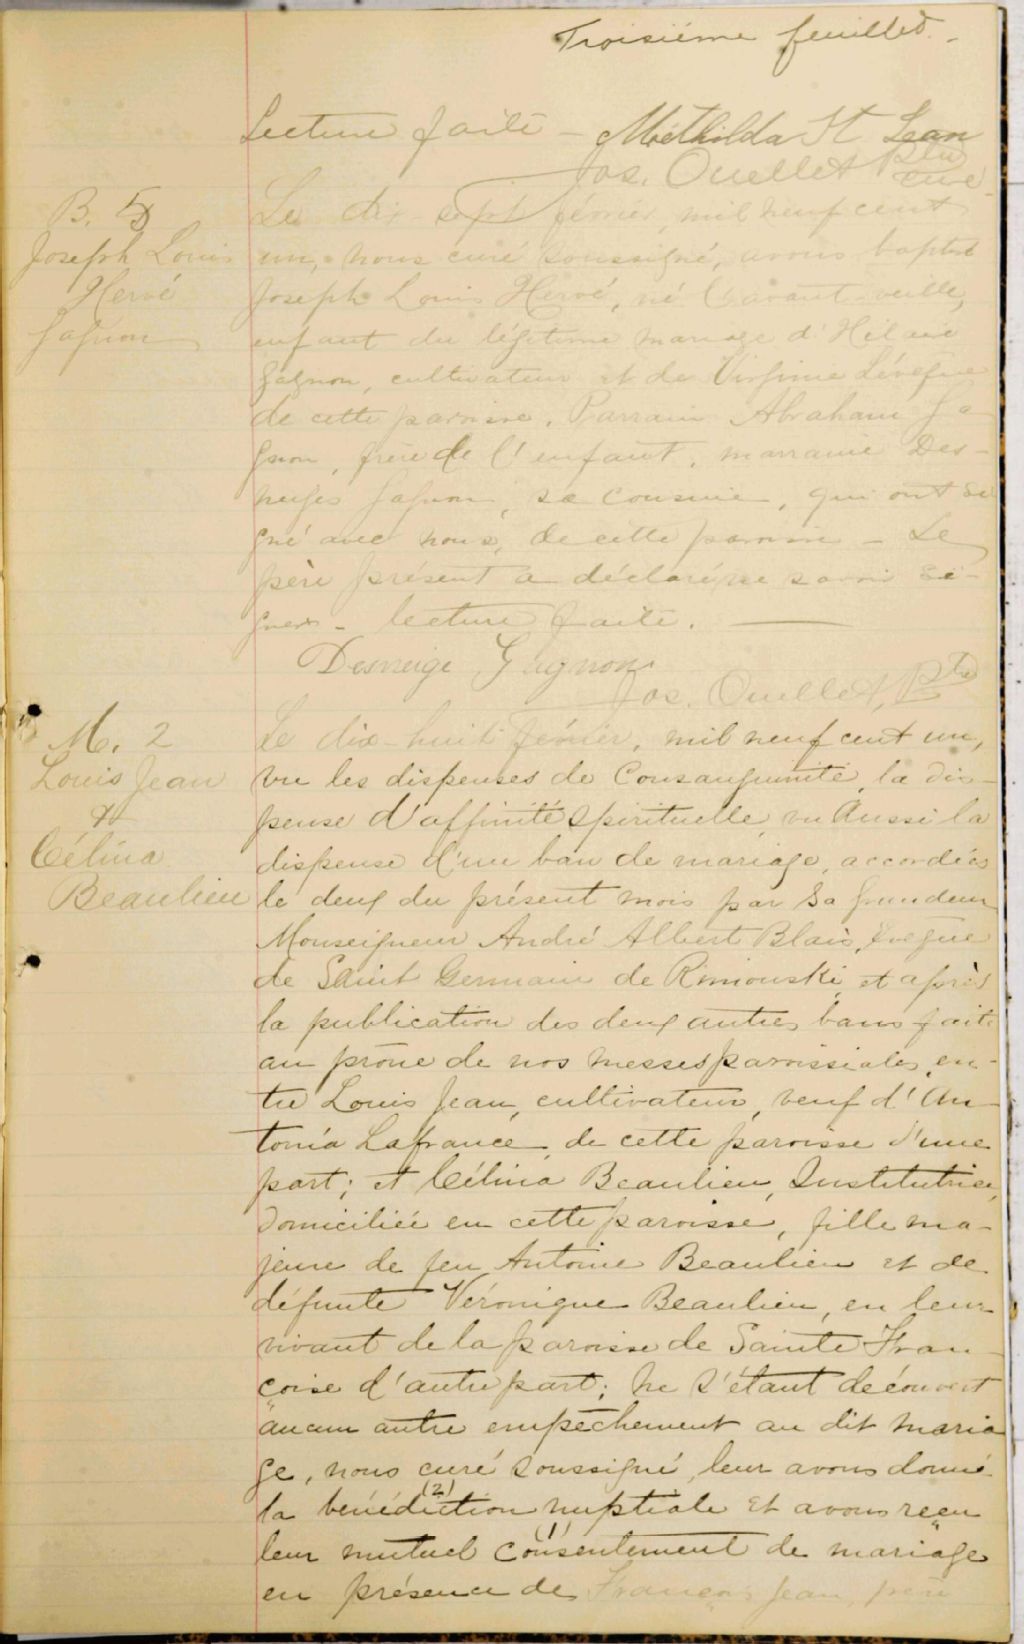 Troisième feuillet. -
Lecture faite - Mathilda St Jean
Jos. Ouellet Ptre
curé
B. 5
Joseph Louis
Hervé
Gagnon
Le dix-sept février, mil neuf cent
un, nous curé soussigné, avons baptisé
Joseph Louis Hervé, né l'avant veille,
enfant du légitime mariage d'Hilaire
Gagnon, cultivateur et de Virginie Lévesque
de cette paroisse. Parrain Abraham Ga
gnon, frère de l'enfant, marraine Des-
neiges Gagnon, sa cousine, qui ont si
gné avec nous, de cette paroisse - Le
père présent a déclaré ne savoir si-
gner - lecture faite.
Desneige Gagnon
Jos. Ouellet, Ptre
M. 2
Louis Jean
&
Célina
Beaulieu
Le dix-huit février, mil neuf cent un,
vu les dispenses de Consanguinité, la dis-
pense d'affinité spirituelle, vu aussi la
dispense d'un ban de mariage, accordées
le deux du présent mois par Sa Grandeur
Monseigneur André Albert Blais, Evêque
de Saint Germain de Rimouski, et après
la publication des deux autres bans faite
au prône de nos messes paroissiales, en-
tre Louis Jean, cultivateur, veuf d'An-
tonia Lafrance, de cette paroisse d'une
part; et Célina Beaulieu, Institutrice,
domiciliée en cette paroisse, fille ma-
jeure de feu Antoine Beaulieu et de
défunte Véronique Beaulieu, en leur
vivant de la paroisse de Sainte Fran-
çoise d'autre part; ne s'étant découvert
aucun autre empêchement au dit maria
ge, nous curé soussigné, leur avons donné
(2)
la bénédiction nuptiale et avons reçu
(1)
leur mutuel consentement de mariage
en présence de François Jean, père